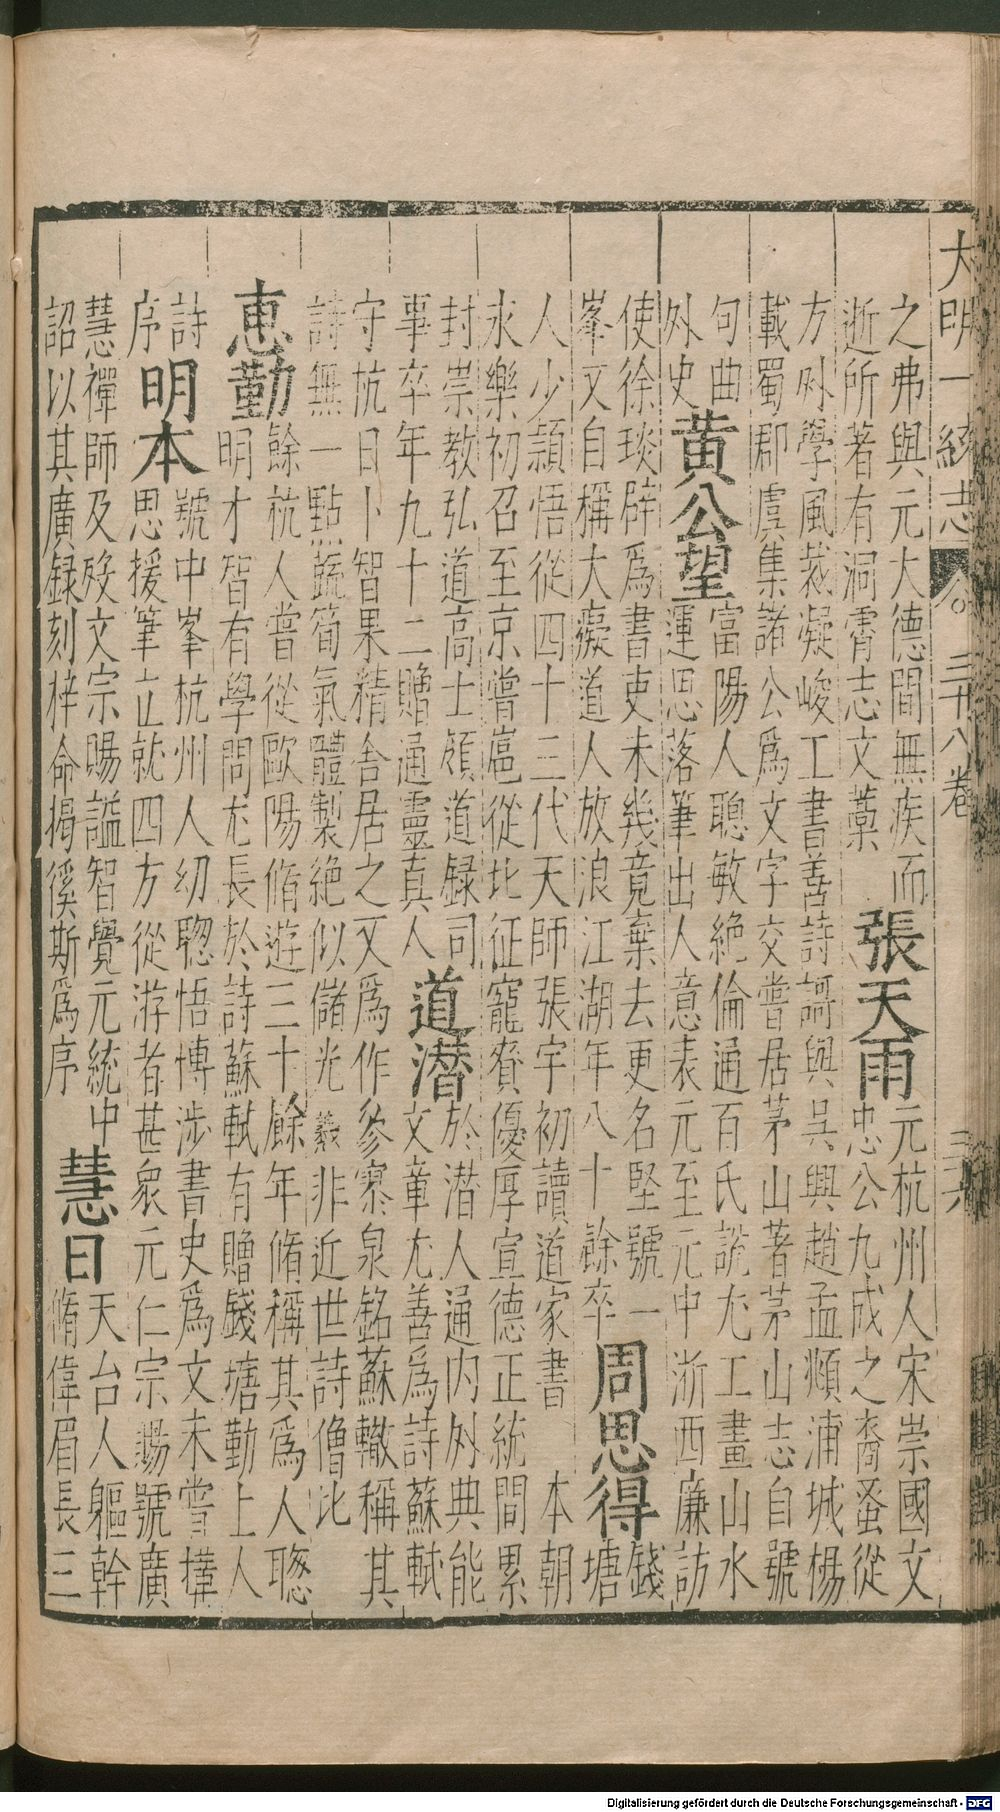 大明一統志 卷三十八卷 三六
之弗與元大德間無疾而
逝所著有洞霄志文藁
張天雨
元杭州人宋崇國文
忠公九成之裔蚤從
方外學風裁凝峻工書善詩謌與吳興趙孟頫浦城楊
載蜀郡虞集諸公爲文字交嘗居茅山著茅山志自號
句曲
外史
黄公望
富陽人聰敏絶倫通百氏説尤工畫山水
運思落筆出人意表元至元中浙西廉訪
使徐琰辟爲書吏未幾竟棄去更名堅號一
峯又自稱大癡道人放浪江湖年八十餘卒
周思得
錢
塘
人少頴悟從四十三代天師張宇初讀道家書 本朝
永樂初召至京嘗扈從北征寵賚優厚宣德正統間累
封崇教弘道高士領道録司
事卒年九十二贈通靈真人
道潜
於潜人通内外典能
文章尤善爲詩蘇軾
守杭日卜智果精舍居之又爲作參寥泉銘蘇轍稱其
詩無一點蔬筍氣體製絶似儲光羲非近世詩僧比
惠勤
餘杭人嘗從歐陽脩遊三十餘年脩稱其爲人聰
明才智有學問尤長於詩蘇軾有贈錢塘勤上人
詩
序
明本
號中峯杭州人幼聦悟博涉書史爲文未嘗撁
思援筆立就四方從游者甚衆元仁宗賜號廣
慧禪師及殁文宗賜謚智覺元統中
詔以其廣録刻梓命揭徯斯爲序
慧日
天台人軀幹
脩偉眉長三
Digitalisierung gefördert durch die Deutsche Forschungsgemeinschaft - DFG